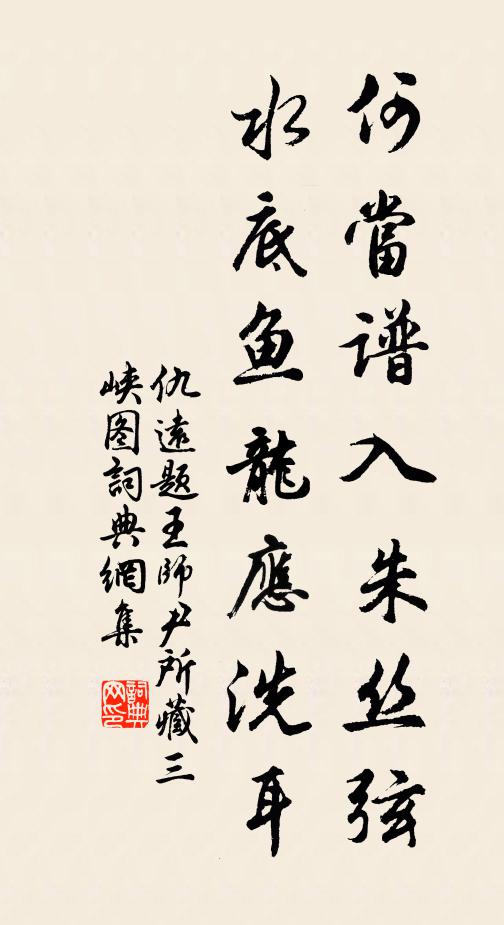 何當谱入朱丝弦
水底鱼龍應洗耳
仇遠题王師尹所藏三
峡图詞典網集
詞典網印